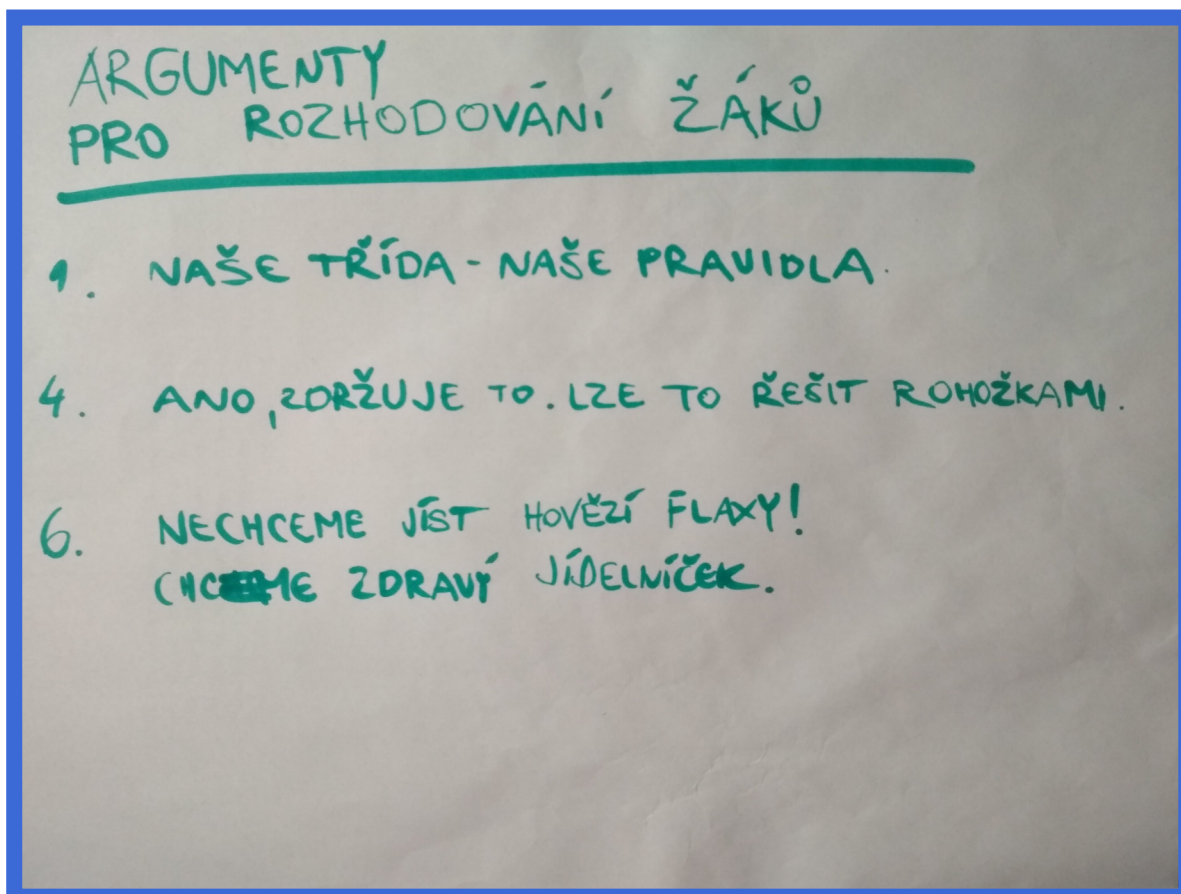 ARGUMENTY
PRO ROZHODOVÁNÍ ŽÁKŮ
1. NAŠE TŘÍDA - NAŠE PRAVIDLA.
4. ANO, ZDRŽUJE TO. LZE TO ŘEŠIT ROHOŽKAMI.
6. NECHCEME JÍST HOVĚZÍ FLAXY!
CHCEME ZDRAVÝ JÍDELNÍČEK.